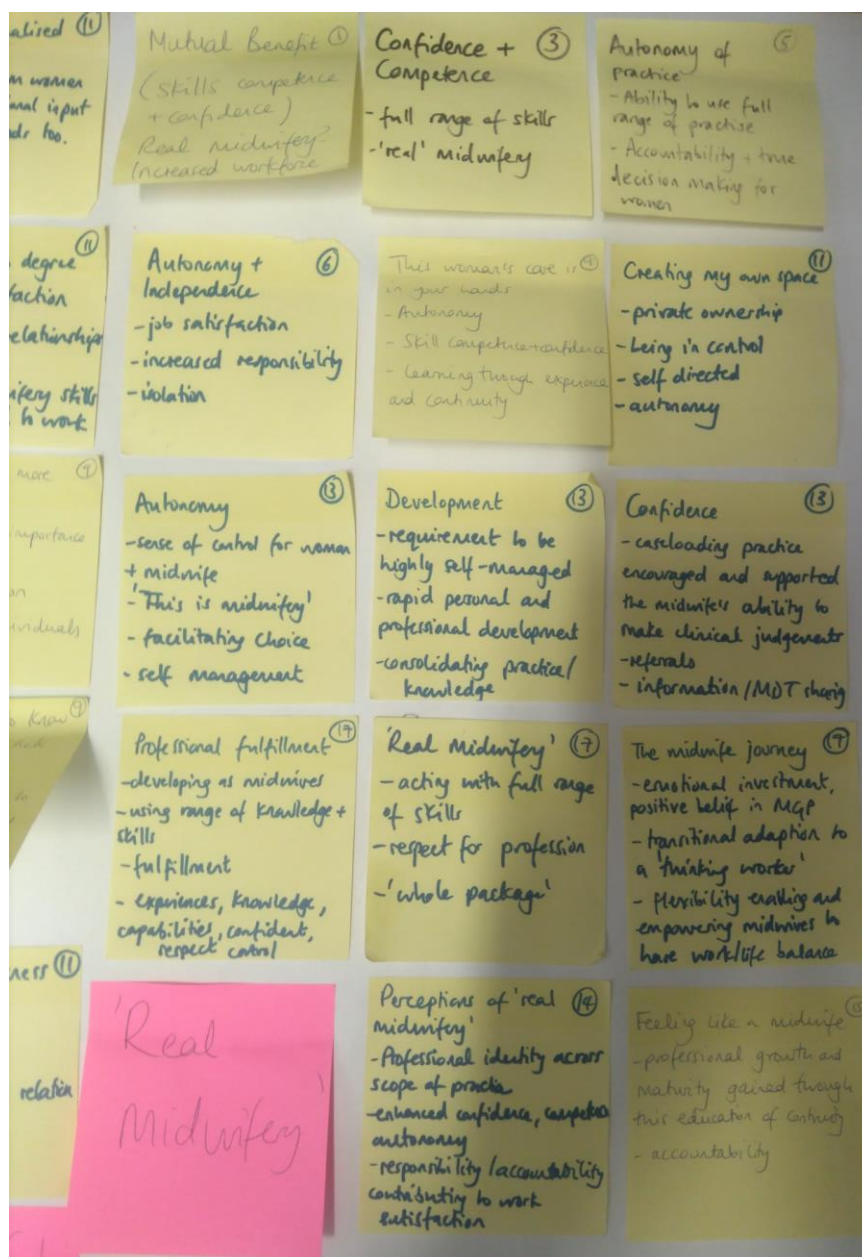 alised 11
m women
onal input
nds too.
Mutual Benefit 1
(Skills competence
+ confidence)
Real midwifery -
Increased workforce
Confidence + 3
Competence
- full range of skills
- 'real' midwifery
Autonomy of 5
practice
- Ability to use full
range of practise
- Accountability + true
decision making for
women
11
degree
faction
relationships
ifery skills
to work
Autonomy + 6
Independence
- job satisfaction
- increased responsibility
- isolation
This woman's care is 9
in your hands
- Autonomy
- Skill competence + confidence
- Learning through experience
and continuity
Creating my own space 11
- private ownership
- being in control
- self directed
- autonomy
more 9
importance
on
ividuals
Autonomy 13
- sense of control for woman
+ midwife
- 'This is midwifery'
- facilitating choice
- self management
Development 13
- requirement to be
highly self-managed
- rapid personal and
professional development
- consolidating practice/
knowledge
Confidence 13
- caseloading practice
encouraged and supported
the midwife's ability to
make clinical judgements
- referrals
- information/MDT sharing
o know 9
Professional fulfillment 17
- developing as midwives
- using range of knowledge +
skills
- fulfillment
- experiences, knowledge,
capabilities, confident,
respect control
'Real Midwifery' 17
- acting with full range
of skills
- respect for profession
- 'whole package'
The midwife journey
- emotional investment,
positive belief in MGP
- transitional adaption to
a 'thinking worker'
- flexibility enabling and
empowering midwives to
have work/life balance
ness 11
relation
'Real
Midwifery'
Perceptions of 'real 14
midwifery'
- Professional identity across
scope of practice
- enhanced confidence, competence
autonomy
- responsibility/accountability
contributing to work
satisfaction
Feeling like a midwife
- professional growth and
maturity gained through
this education of continuity
- accountability